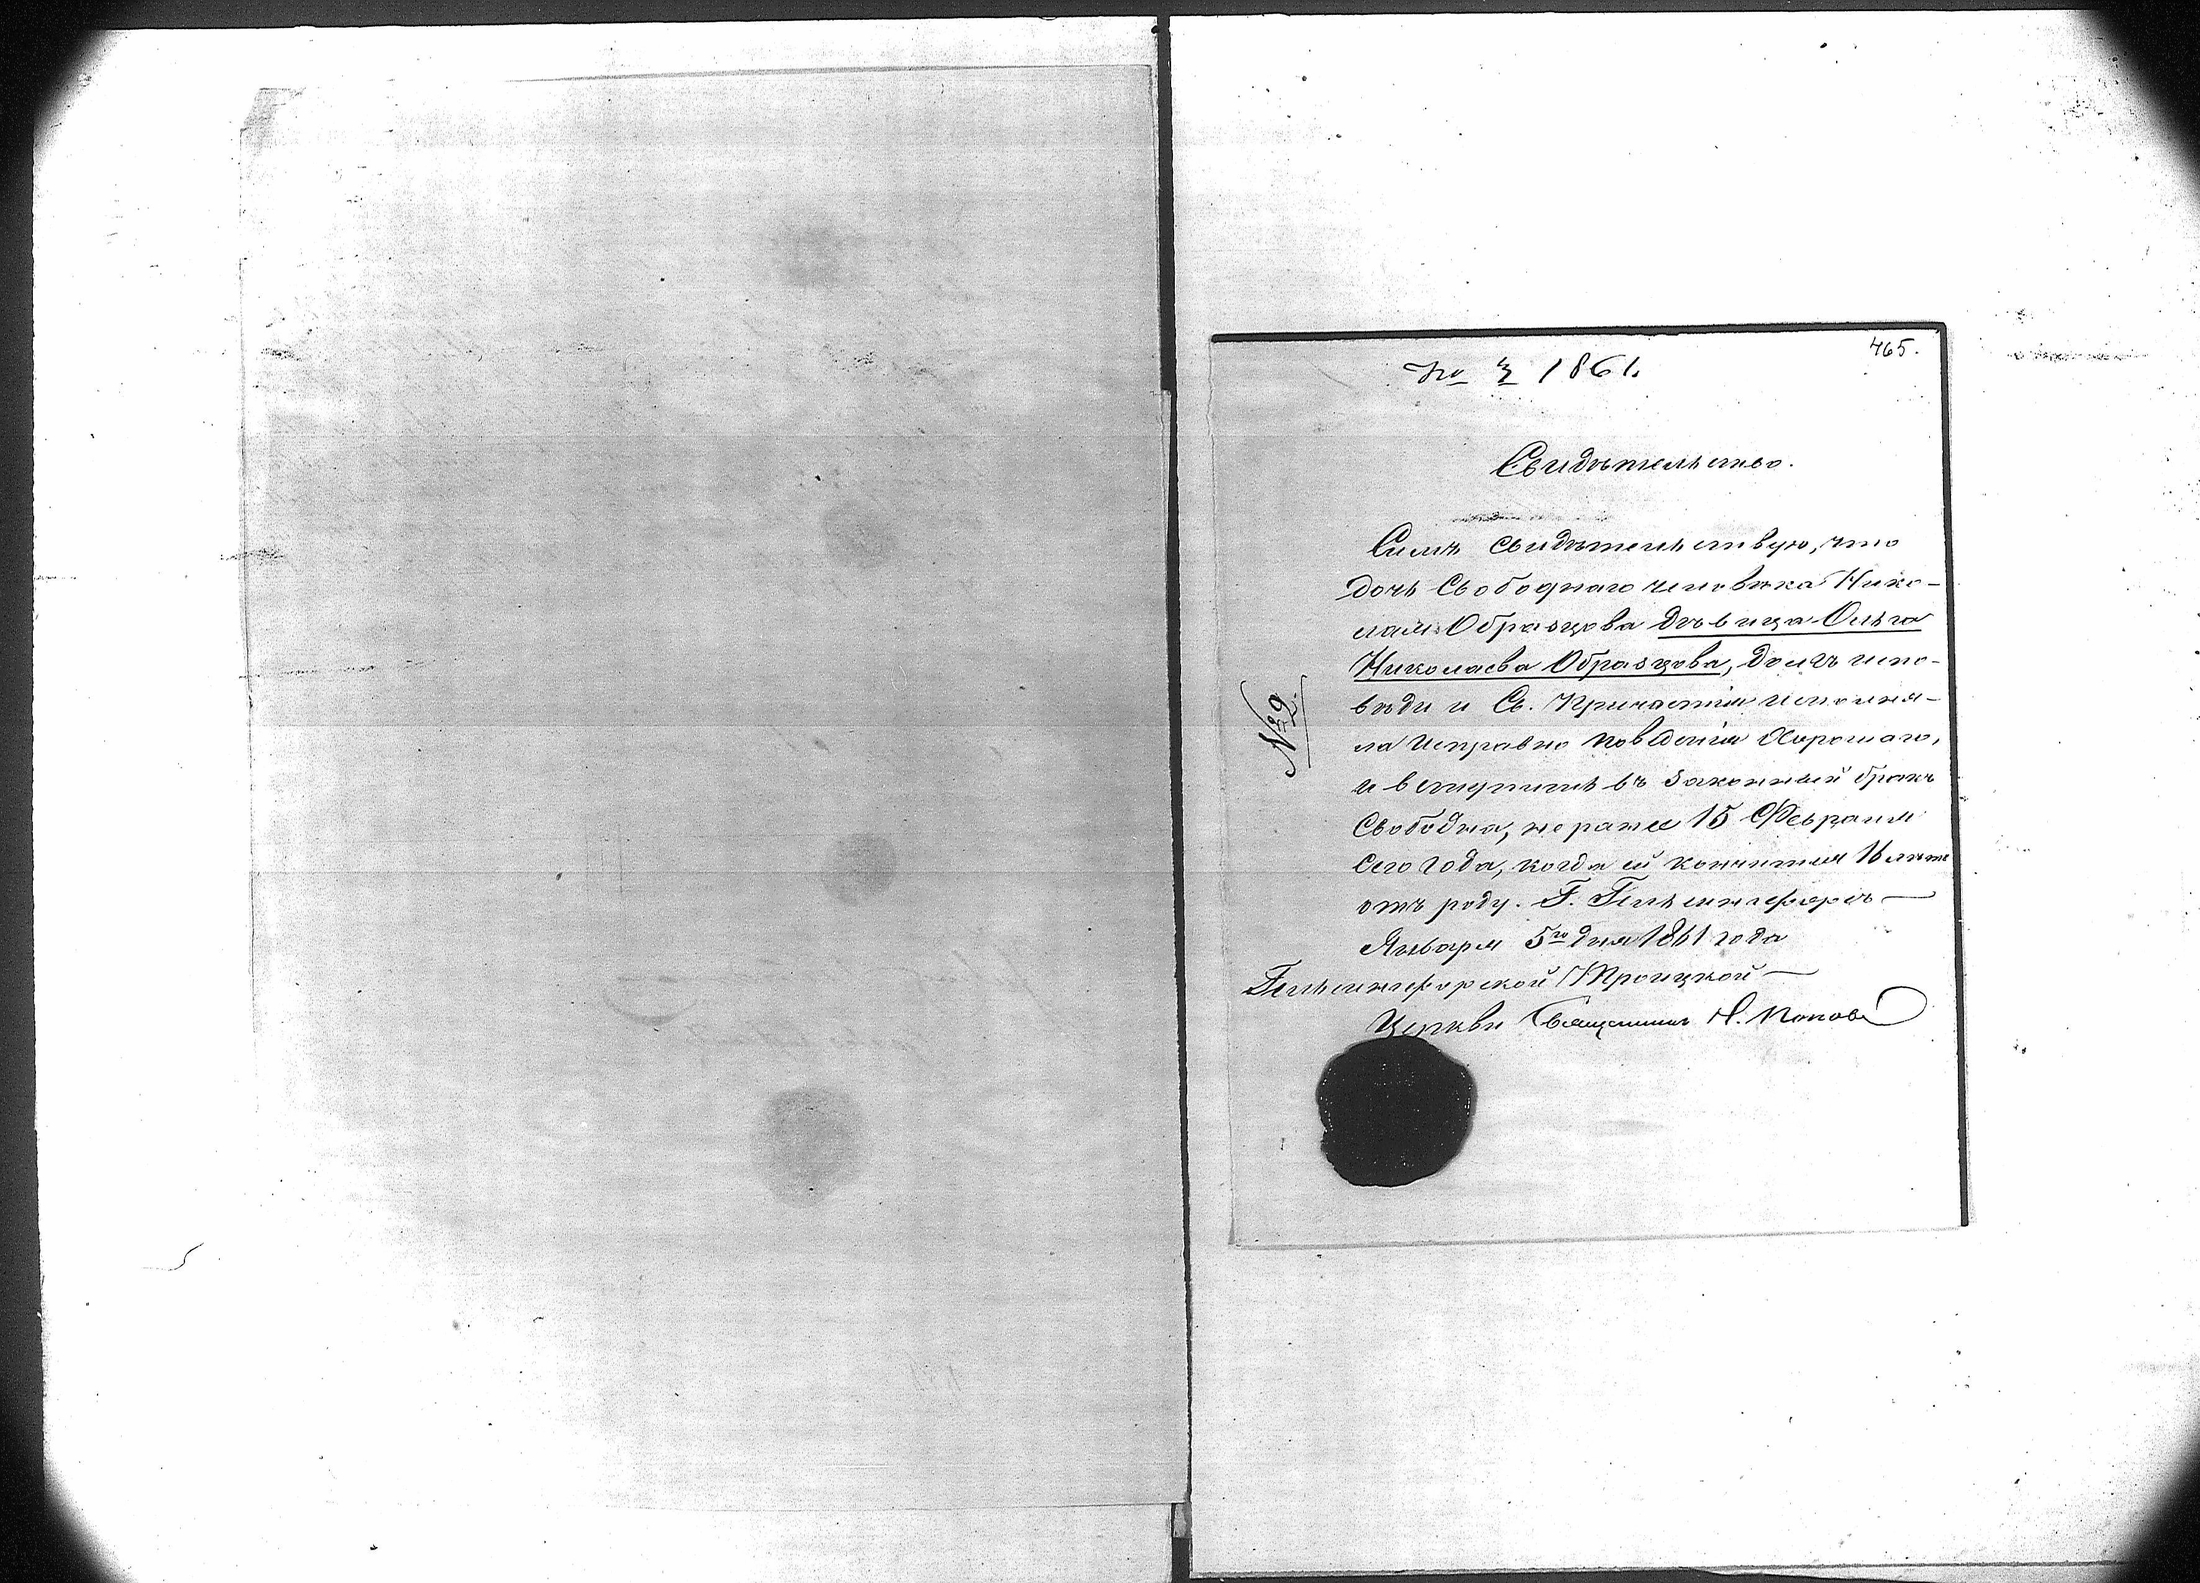 465.
№ 3 1861.
Свидѣтельство.
Симъ свидѣтельствую, что
дочь Свободнаго человѣка Нико-
лая Образцова дѣвица Ольга
Николаева Образцова, долгъ испо-
вѣди и Св. Причастія исполня-
ла исправно поведенія хорошаго,
и вступить въ законный бракъ
Свободна, не ранее 15 Февраля
сего года, когда ей кончится 16 лѣтъ
отъ роду. Г. Гельсингфорсъ
Января 5го дня 1861 года
Гельсингфорской Троицкой
Церкви Священникъ Н. Поповъ
№ 29.